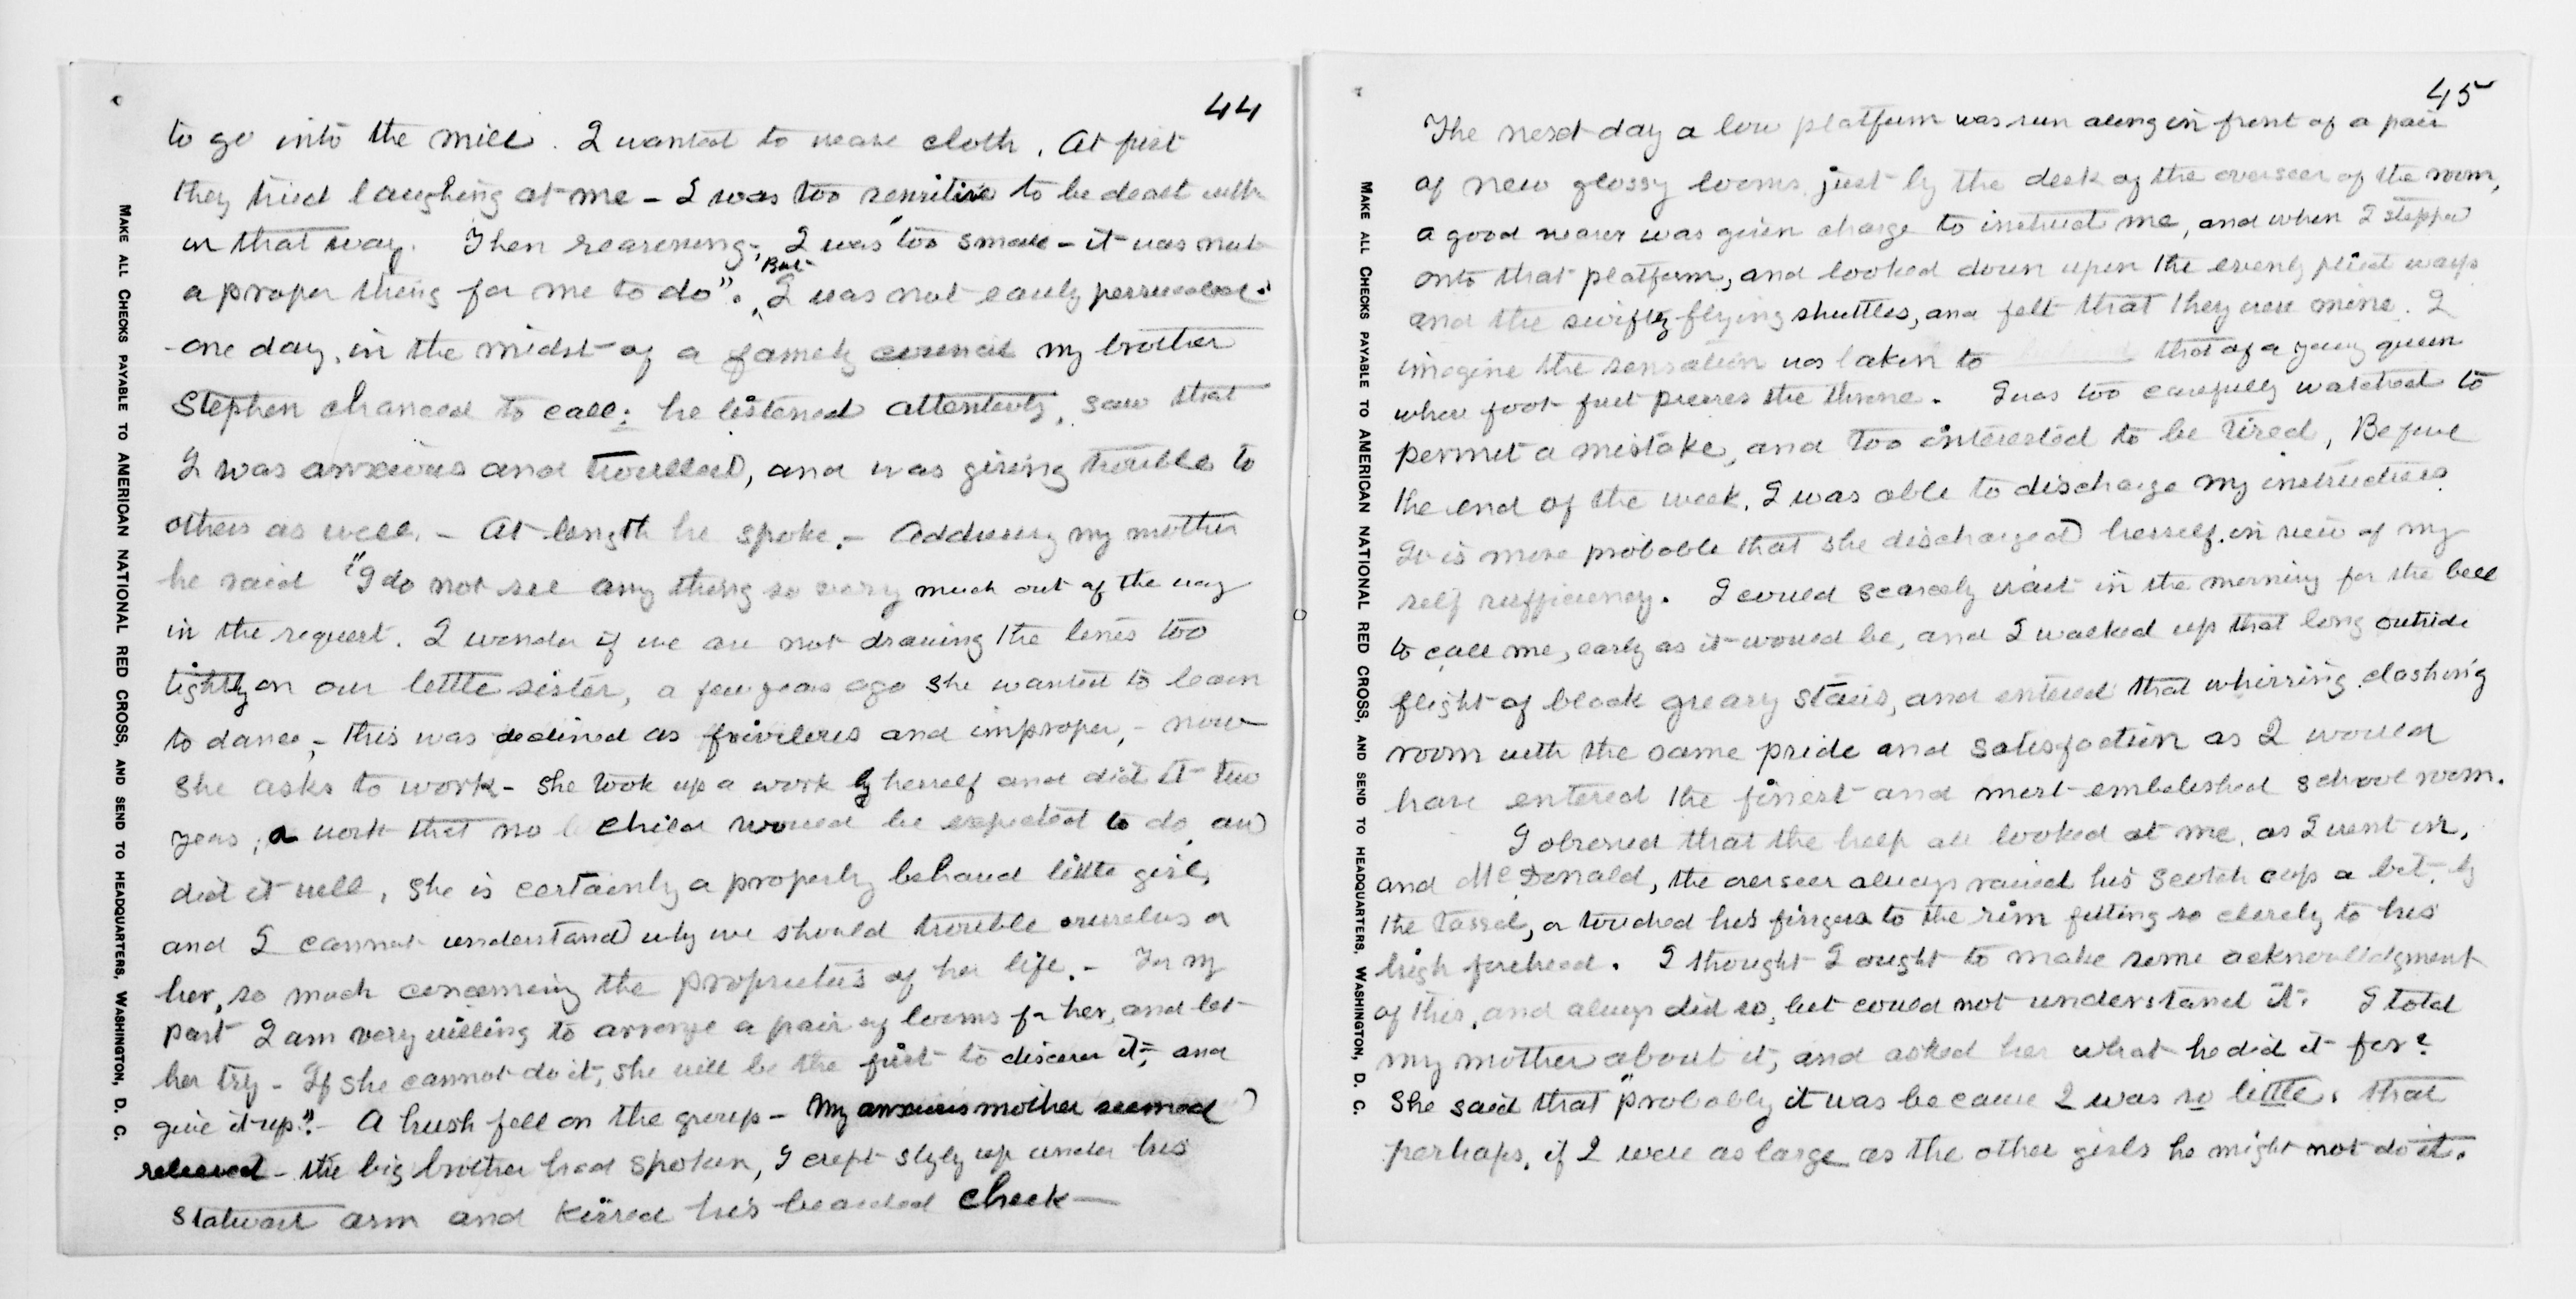 44
to go into the mill. I wanted to weave cloth. At first
they tried laughing at me – I was too sensitive to be dealt with
in that way. Then reasoning; "I was too small – it was not
a proper thing for me to do". But I was not easily persuaded.
one day, in the midst of a family council my brother
Stephen chanced to call; he listened attentively, saw that
I was anxious and troubled, and was giving trouble to
others as well. – At length he spoke. – Addressing my mother
he said "I do not see any thing so very much out of the way
in the request. I wonder if we are not drawing the lines too
tightly on our little sister, a few years ago she wanted to learn
to dance, – this was declined as frivilous and improper, – now
she asks to work – she took up a work by herself and did it two
years, a work that no child would be expected to do, and
did it well, she is certainly a properly behaved little girl,
and I cannot understand why we should trouble ourselves or
her, so much concerning the proprieties of her life. – For my
part I am very willing to arrange a pair of looms for her, and let
her try – If she cannot do it, she will be the first to discover it; and
give it up". – A hush fell on the group – My anxious mother seemed
relieved – the big brother had spoken, I crept slyly up under his
stalwart arm and kissed his bearded cheek —
MAKE ALL CHECKS PAYABLE TO AMERICAN NATIONAL RED CROSS, AND SEND TO HEADQUARTERS, WASHINGTON, D. C.
45
The next day a low platform was run along in front of a pair
of new glossy looms just by the desk of the overseer of the room,
a good weaver was given charge to instruct me, and when I stepped
onto that platform, and looked down upon the evenly plied warps
and the swiftly flying shuttles, and felt that they were mine. I
imagine the sensation was taken to that of a young queen
whose foot first presses the throne. I was too carefully watched to
permit a mistake, and too interested to be tired, Before
the end of the week, I was able to discharge my instructress
It is more probable that she discharged herself in view of my
self sufficiency. I could scarcely wait in the morning for the bell
to call me, early as it would be, and I walked up that long outside
flight of black greasy stairs, and entered that whirring clashing
room with the same pride and satisfaction as I would
have entered the finest and most embelished school room.
I observed that the help all looked at me, as I went in,
and McDonald, the overseer always raised his Scotch cap a bit, by
the tassel, or touched his fingers to the rim fitting so closely to his
high forehead. I thought I ought to make some acknowlidgment
of this, and always did so, but could not understand it. I told
my mother about it, and asked her what he did it for?
She said that "probably it was because I was so little, that
perhaps, if I were as large as the other girls he might not do it.
MAKE ALL CHECKS PAYABLE TO AMERICAN NATIONAL RED CROSS, AND SEND TO HEADQUARTERS, WASHINGTON, D. C.